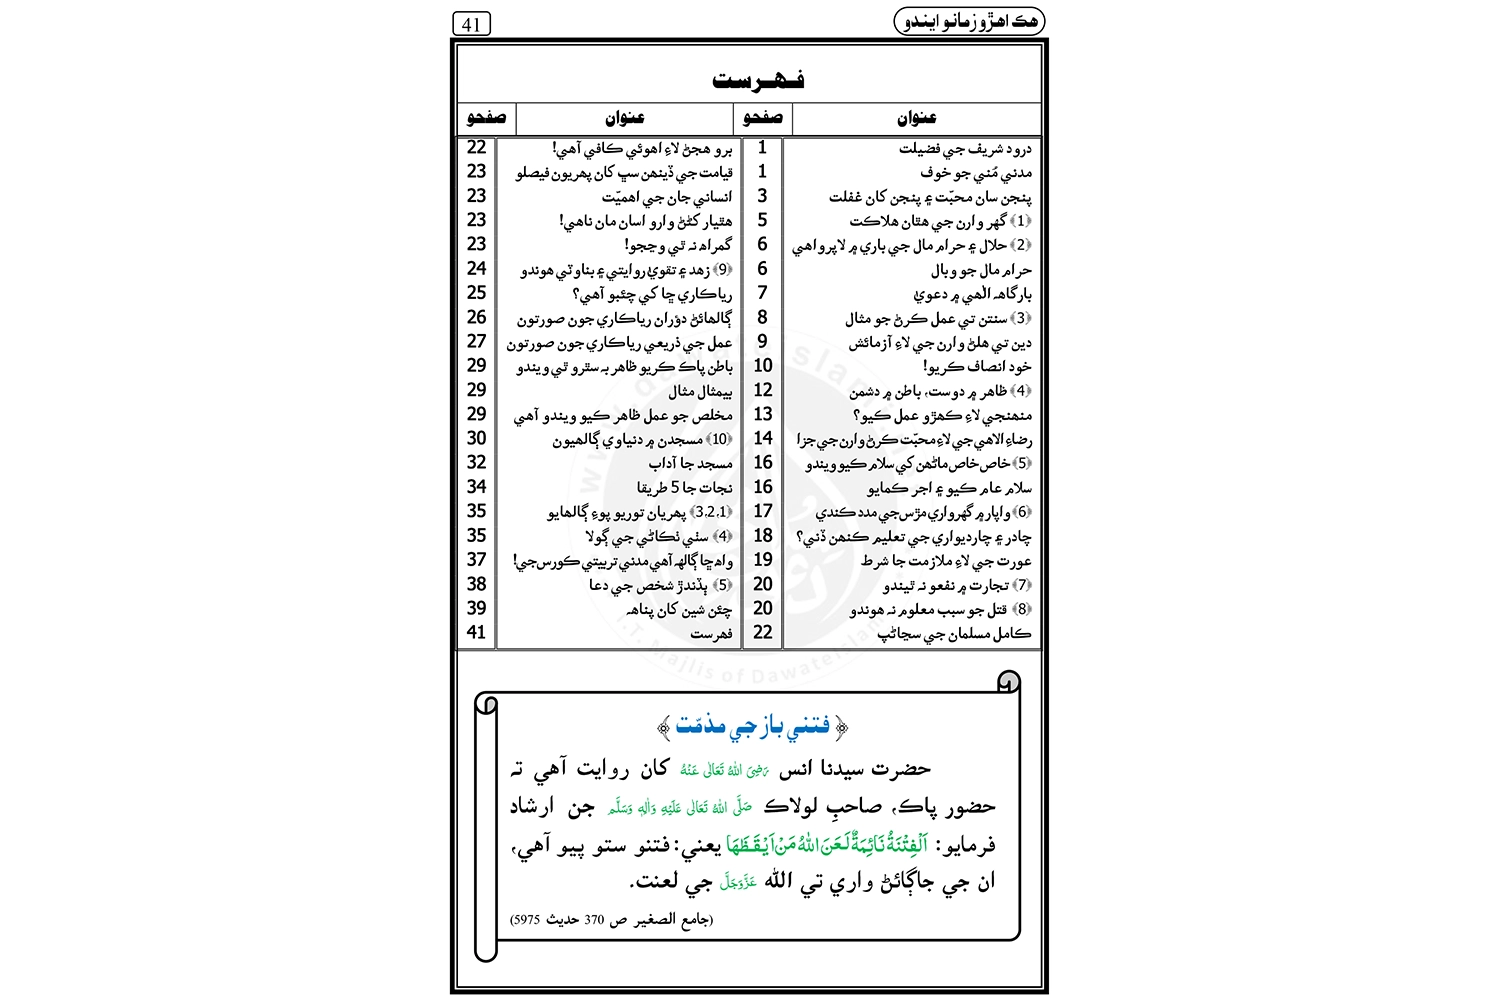 هڪ اهڙو زمانو ايندو
41
فهرست
عنوان صفحو عنوان صفحو
درود شريف جي فضيلت 1 برو هجڻ لاءِ اهوئي ڪافي آهي! 22
مدني مُني جو خوف 1 قيامت جي ڏينهن سڀ کان پهريون فيصلو 23
پنجن سان محبّت ۽ پنجن کان غفلت 3 انساني جان جي اهميّت 23
﴿1﴾ گھر وارن جي هٿان هلاڪت 5 هٿيار کڻڻ وارو اسان مان ناهي! 23
﴿2﴾ حلال ۽ حرام مال جي باري ۾ لاپرواهي 6 گمراه نہ ٿي وڃجو! 23
حرام مال جو وبال 6 ﴿9﴾ زهد ۽ تقويٰ روايتي ۽ بناوٽي هوندو 24
بارگاهہ الٰهي ۾ دعويٰ 7 رياڪاري ڇا کي چئبو آهي؟ 25
﴿3﴾ سنتن تي عمل ڪرڻ جو مثال 8 ڳالهائڻ دؤران رياڪاري جون صورتون 26
دين تي هلڻ وارن جي لاءِ آزمائش 9 عمل جي ذريعي رياڪاري جون صورتون 27
خود انصاف ڪريو! 10 باطن پاڪ ڪريو ظاهر بہ سٿرو ٿي ويندو 29
﴿4﴾ ظاهر ۾ دوست، باطن ۾ دشمن 12 بيمثال مثال 29
منهنجي لاءِ ڪهڙو عمل ڪيو؟ 13 مخلص جو عمل ظاهر ڪيو ويندو آهي 29
رضاءِ الاهي جي لاءِ محبّت ڪرڻ وارن جي جزا 14 ﴿10﴾ مسجدن ۾ دنياوي ڳالهيون 30
﴿5﴾ خاص خاص ماڻهن کي سلام ڪيو ويندو 16 مسجد جا آداب 32
سلام عام ڪيو ۽ اجر ڪمايو 16 نجات جا 5 طريقا 34
﴿6﴾ واپار ۾ گھرواري مڙس جي مدد ڪندي 17 ﴿3،2،1﴾ پهريان توريو پوءِ ڳالهايو 35
چادر ۽ چارديواري جي تعليم ڪنهن ڏني؟ 18 ﴿4﴾ سٺي ٺڪاڻي جي ڳولا 35
عورت جي لاءِ ملازمت جا شرط 19 واه ڇا ڳالهہ آهي مدني تربيتي ڪورس جي! 37
﴿7﴾ تجارت ۾ نفعو نہ ٿيندو 20 ﴿5﴾ ٻڏندڙ شخص جي دعا 38
﴿8﴾ قتل جو سبب معلوم نہ هوندو 20 چئن شين کان پناهہ 39
ڪامل مسلمان جي سڃاڻپ 22 فهرست 41
﴿فتني باز جي مذمّت﴾
حضرت سيدنا انس رَضِیَ اللّٰهُ تَعَالٰی عَنْهُ کان روايت آهي تہ
حضور پاڪ، صاحبِ لولاڪ صَلَّی اللّٰهُ تَعَالٰی عَلَيْهِ وَاٰلِهٖ وَسَلَّم جن ارشاد
فرمايو: اَلْفِتْنَةُ نَائِمَةٌ لَعَنَ اللّٰهُ مَنْ اَيْقَظَهَا يعني: فتنو ستو پيو آهي،
ان جي جاڳائڻ واري تي الله عَزَّوَجَلَّ جي لعنت.
(جامع الصغير ص 370 حديث 5975)
www.dawateislami.net
I.T. Majlis of Dawateislami